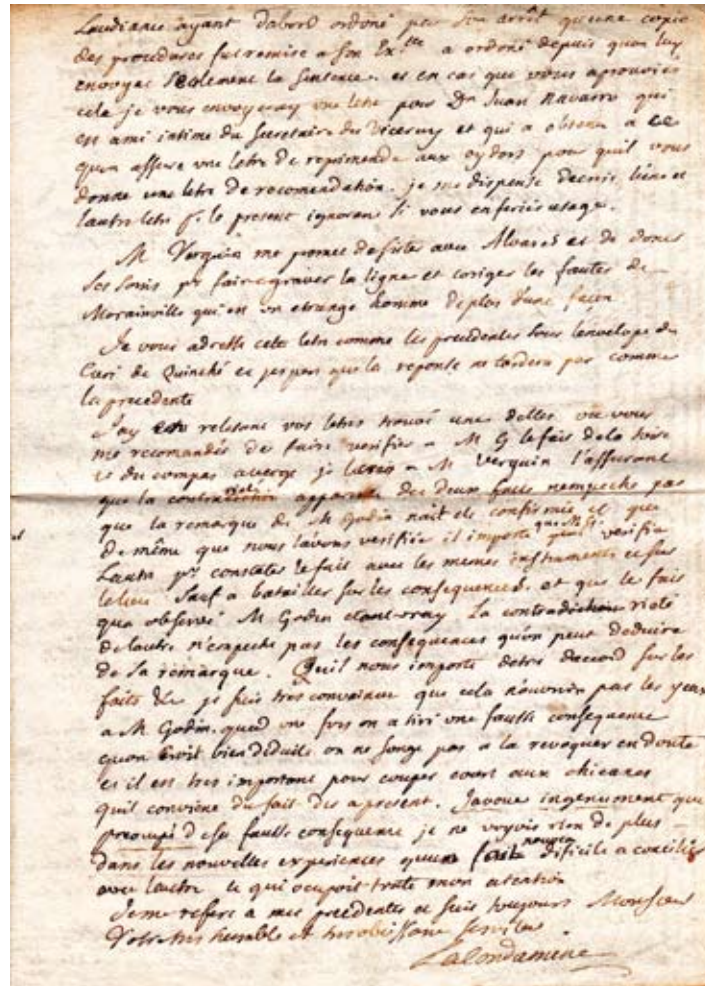 Laudiance ayant dabord ordoné par son arrêt quune copie
des procedures fut remise a Son Ex.ce a ordoné depuis quon luy
envoyat seulement la sentence. et en cas que vous aprouviés
cela je vous envoyeray une letre pour Dn Juan Navarro qui
est ami intime du Secretaire du Viceroy et qui a obtenu a ce
quon assure une letre de reprimende aux oydors pour quil vous
donne une letre de recomendation. je me dispense decrire lune et
lautre letre p. le present ignorant si vous en feriés usage.
M Verguin me promet de fister avec Alvarés et de doner
ses soins pr faire graver la ligne et coriger les fautes de
Morainville qui est un etrange homme de plus dune façon
Je vous adresse cete letre comme les precedentes sous lenvelope du
Curé de Quinché et jespere que la reponse ne tardera pas comme
la precedente
Jay en relisant vos letres trouvé une delles ou vous
me recomandés de faire verifier a M G le fait de la toise
et du compas a verge je lecris a M Verguin l'assurant
que la contrarieté apparente des deux faits nempeche pas
que la remarque de M Godin nait eté confirmée et que
de même que nous lavons verifiée il importe que M G. verifie
Lautre pr constater le fait avec les memes instruments et sur
le lieu sauf a batailler sur les consequences. et que le fait
qua observé M Godin etant vray La contradictoire rieté
de lautre n'empeche pas les consequences qu'on peut deduire
de sa remarque. Quil nous importe detre dacord sur les
faits &c je suis tres convaincu que cela n'ouvrira pas les yeux
a M Godin. quand une fois on a tiré une fausse consequence
quon croit bien deduite on ne songe pas a la revoquer en doute
et il est tres important pour couper court aux chicanes
quil conviene du fait des a present. Javoue ingenument que
preocupé de sa fausse consequence je ne voyois rien de plus
dans les nouvelles experiences quun fait nouveau dificile a concilier
avec lautre ce qui ocupoit toute mon atention
Je me refere a mes precedentes et suis toujours Monsieur
Votre tres humble et tres obeissant serviteur
La Condamine